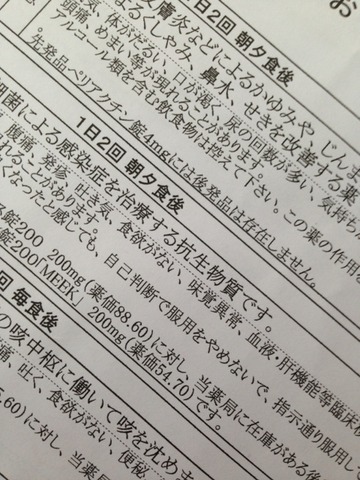 お
1日2回 朝夕食後
皮膚炎などによるかゆみや、じんま
よるくしゃみ、鼻水、せきを改善する薬
気、体がだるい、口が渇く、尿の回数が多い、気持ち
頭痛、めまい等が現れることがあります。この薬の作用
アルコール類を含む飲食物は控えて下さい。
先発品ペリアクチン錠4mgには後発品は存在しません。
1日2回 朝夕食後
細菌による感染症を治療する抗生物質です。
腹痛、発疹、吐き気、食欲がない、味覚異常、血液・肝機能等臨床検
れることがあります。
くなったと感じても、自己判断で服用をやめないで、指示通り服用し
錠200 200mg(薬価88.60)に対し、当薬局に在庫がある後
錠200「MEEK」 200mg(薬価54.70)です。
回 毎食後
の咳中枢に働いて咳を沈めま
痛、吐く、食欲がない、便秘
5.60)に対し、当薬局